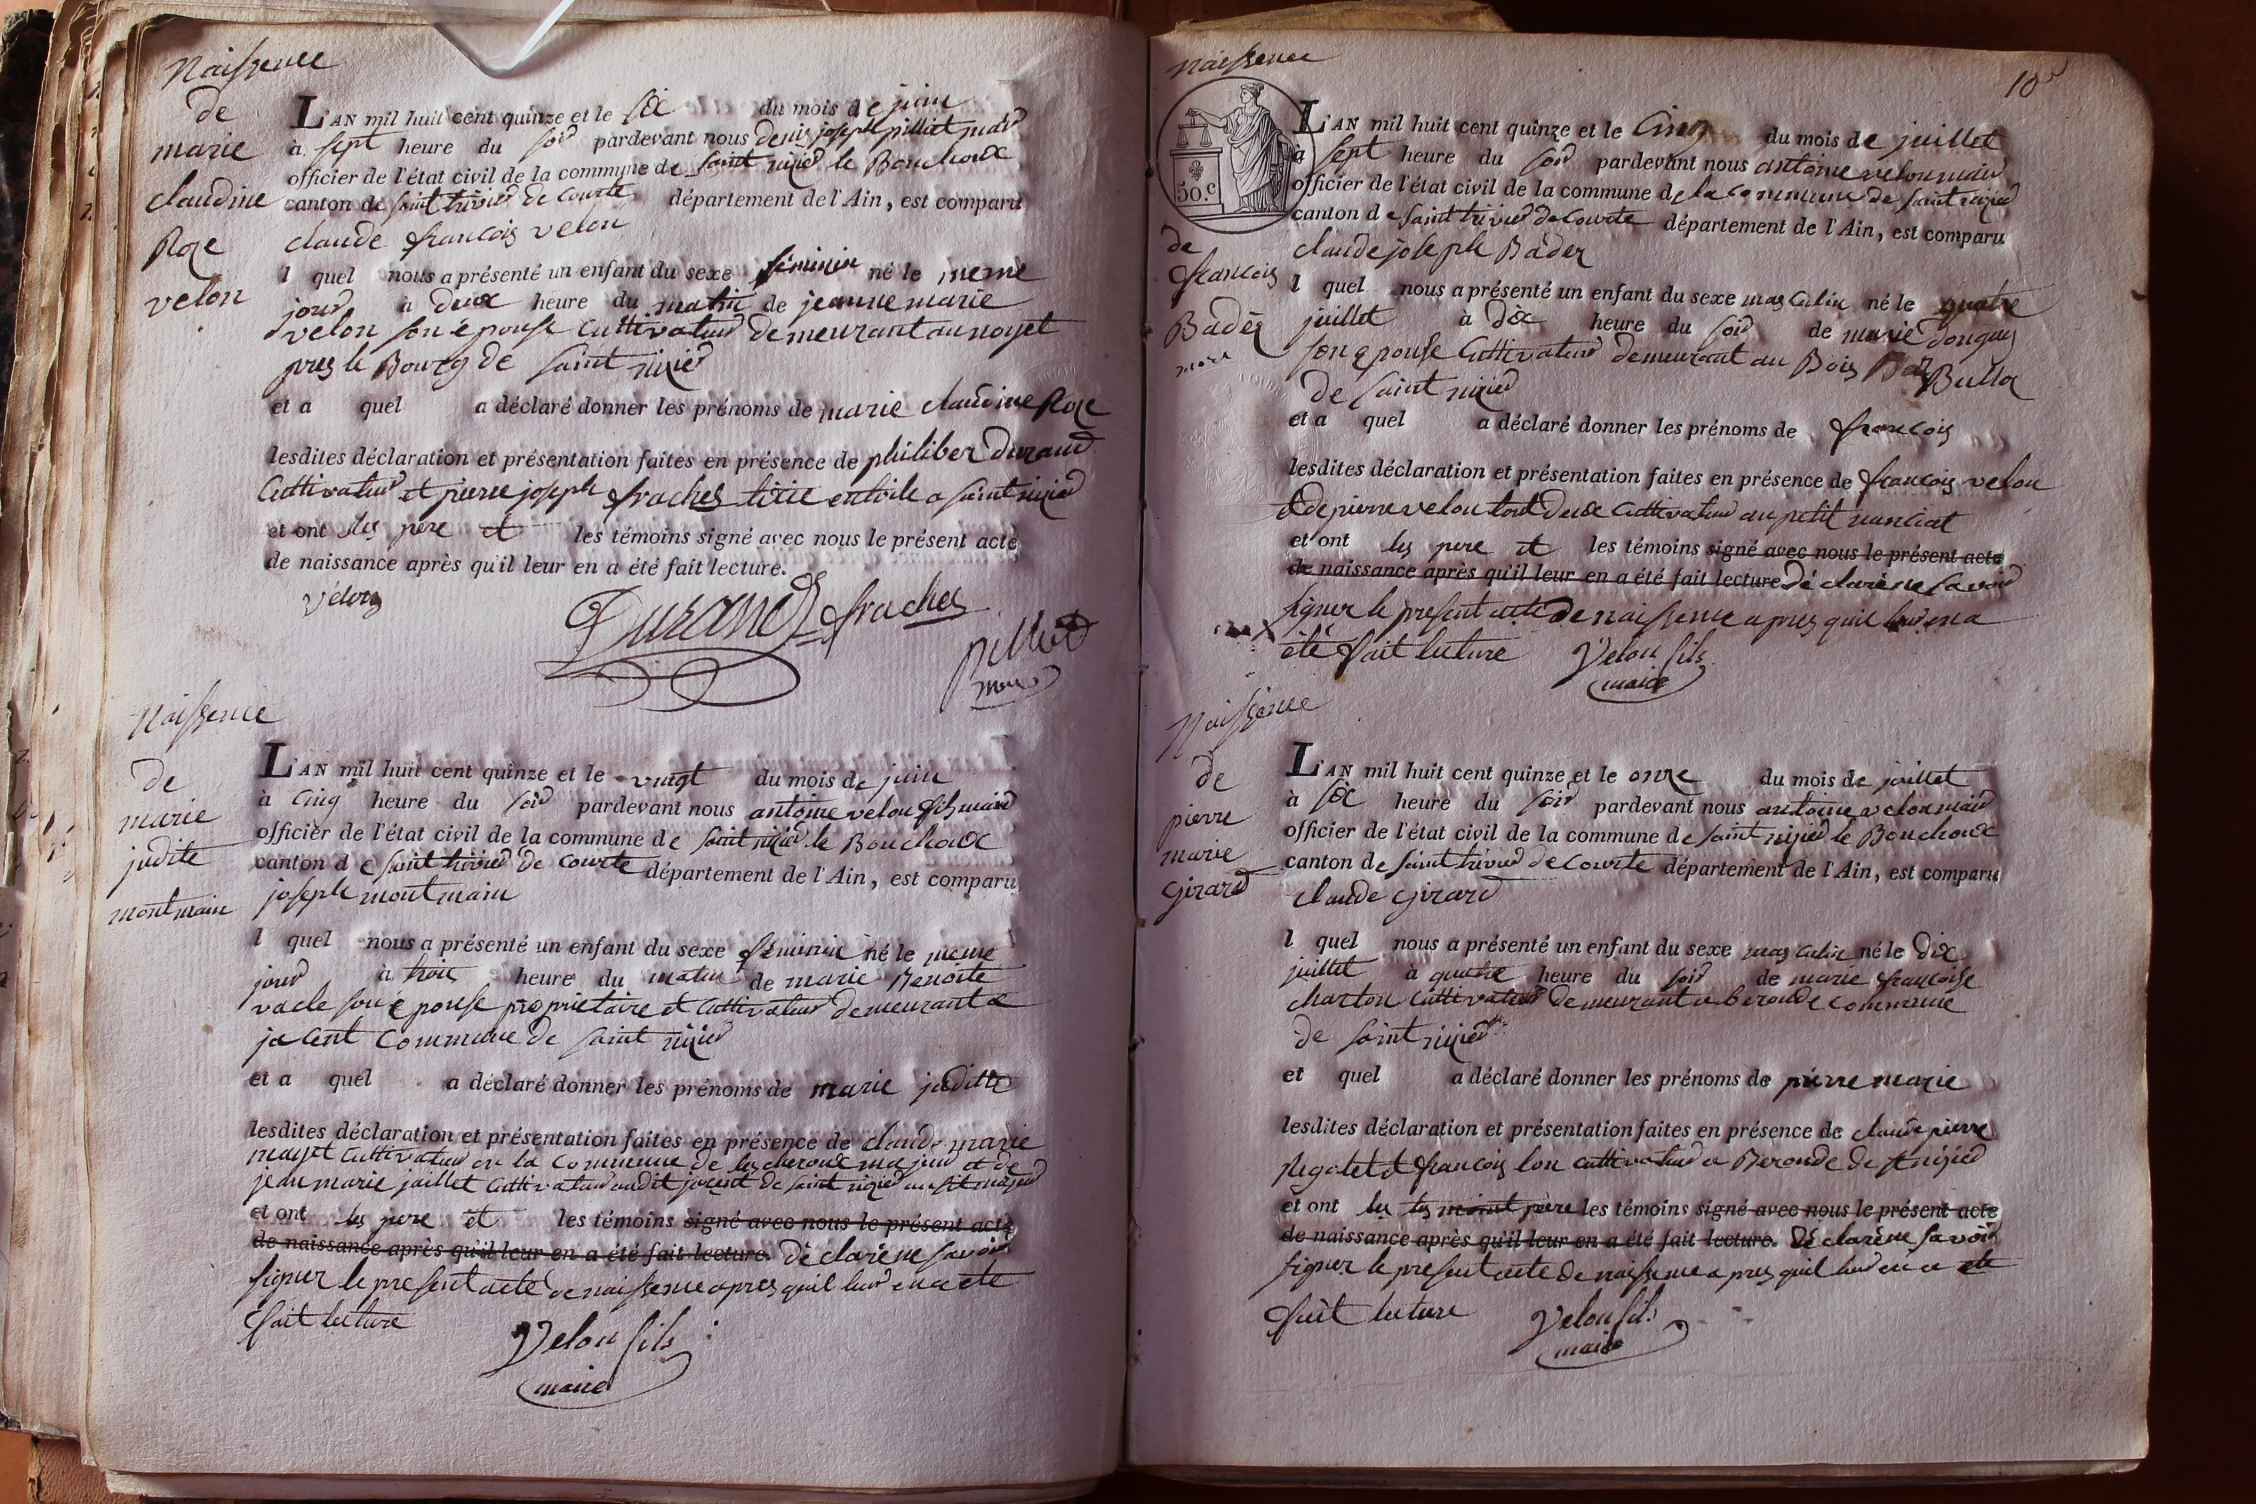 Naissence
de
marie
claudine
Roze
velon
L'AN mil huit cent quinze et le six du mois de juin
à sept heure du soir pardevant nous denis joseph pilliat mair
officier de l'état civil de la commune de saint nizier le Bouchoux
canton de saint trivier de Courte département de l'Ain, est comparu
claude francois velon
l quel nous a présenté un enfant du sexe féminin né le meme
jour à deux heure du matin de jeanne marie
velon son épouse Cultivateur demeurant au noyet
pres le Bourg de saint nizier
et a quel a déclaré donner les prénoms de marie claudine Roze
lesdites déclaration et présentation faites en présence de philiber Durand
Cultivateur et pierre joseph fraches entoile a saint nizier
et ont les pere et les témoins signé avec nous le présent acte
de naissance après qu'il leur en a été fait lecture.
Vélon
Durand fraches
pilliat
maire
Naissence
de
marie
judite
montmain
L'AN mil huit cent quinze et le vingt du mois de juin
à Cinq heure du soir pardevant nous antoine velon fils mair
officier de l'état civil de la commune de saint nizier le Bouchoux
canton de saint trivier de Courte département de l'Ain, est comparu
joseph montmain
l quel nous a présenté un enfant du sexe féminin né le meme
jour à trois heure du matin de marie Benoite
vacle son épouse proprietaire et Cultivateur demeurant a
jacent Commune de saint nizier
et a quel a déclaré donner les prénoms de marie juditte
lesdites déclaration et présentation faites en présence de claude marie
mayet Cultivateur en la Commune de lescheroux majeur et de
jean marie jaillet Cultivateur audit jacent de saint nizier aussit majeur
et ont les pere et les témoins signé avec nous le présent acte
de naissance après qu'il leur en a été fait lecture. déclaré ne savoir
signer le present acte de naissence apres quil leur en a eté
fait lecture
Velon fils
maire
10
Naissence
50 c
de
francois
Badez
L'AN mil huit cent quinze et le Cinq du mois de juillet
à sept heure du soir pardevant nous antoine velon mair
officier de l'état civil de la commune de la Commune de saint nizier
canton de saint trivier de Courte département de l'Ain, est comparu
claude joseph Badez
l quel nous a présenté un enfant du sexe masculin né le quatre
juillet à dix heure du soir de marie donguy
son epouse Cultivateur demeurant au Bois
de saint nizier
et a quel a déclaré donner les prénoms de francois
lesdites déclaration et présentation faites en présence de francois velon
et de pierre velon tout deux Cultivateur au petit nanciat
et ont les pere et les témoins signé avec nous le présent acte
de naissance après qu'il leur en a été fait lecture déclaré ne savoir
signer le present acte de naissence apres quil leur en a
été fait lecture Velon fils
maire
Naissence
de
pierre
marie
Girard
L'AN mil huit cent quinze et le onze du mois de juillet
à six heure du soir pardevant nous antoine velon mair
officier de l'état civil de la commune de saint nizier le Bouchoux
canton de saint trivier de Courte département de l'Ain, est comparu
claude Girard
l quel nous a présenté un enfant du sexe masculin né le dix
juillet à quatre heure du soir de marie francoise
charton Cultivateur demeurant a beronde Commune
de saint nizier
et quel a déclaré donner les prénoms de pierre marie
lesdites déclaration et présentation faites en présence de claude pierre
et francois lon cultivateur a Beronde de st nizier
et ont les père les témoins signé avec nous le présent acte
de naissance après qu'il leur en a été fait lecture. déclaré ne savoir
signer le present acte de naissence apres quil leur en a eté
fait lecture Velon fils
maire